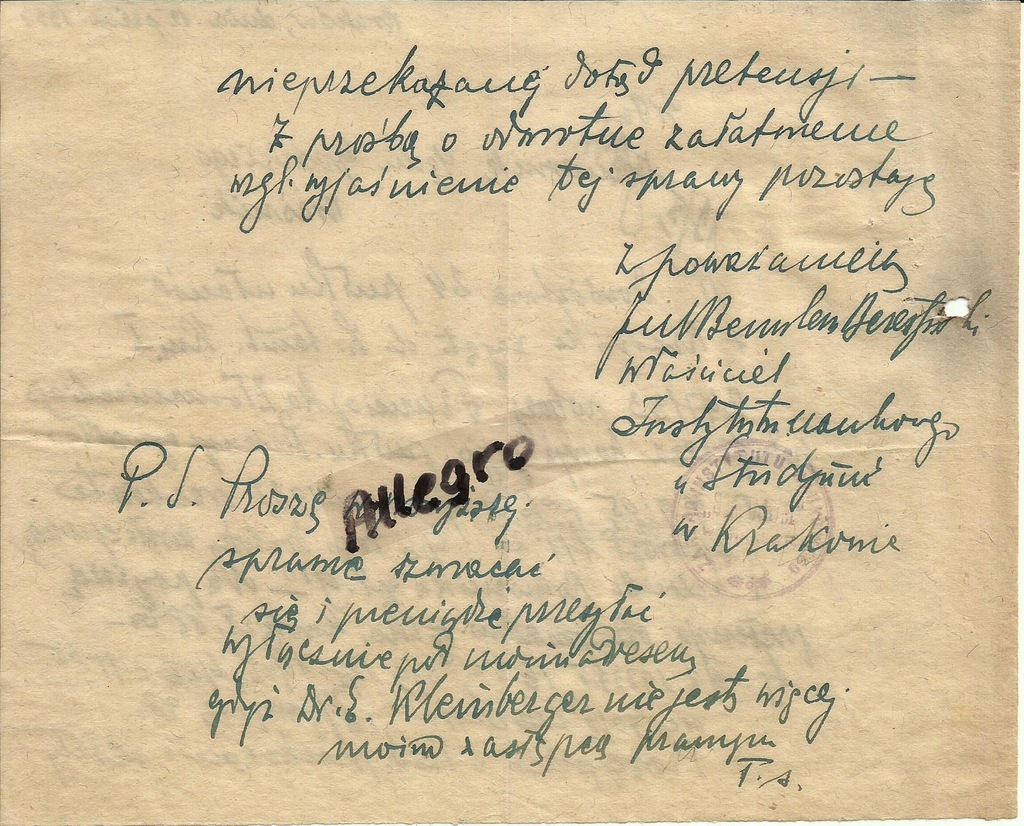 nieprzekazanej dotąd pretensji —
Z prośbą o odwrotne załatwienie
wzgl. wyjaśnienie tej sprawy pozostaję
z poważaniem
właściciel
Instytutu naukowego
"Studjum"
w Krakowie
P. S. Proszę
Allegro
sprawie zwracać
się i pieniądze przesyłać
wyłącznie pod moim adresem,
gdyż Dr. E. Kleinberger nie jest więcej
moim zastępcą prawnym
T. s.